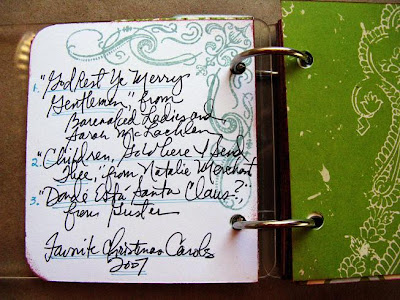 1. "God Rest Ye Merry
Gentlemen," from
Barenaked Ladies and
Sarah McLachlan
2. "Children, Go Where I Send
Thee," from Natalie Merchant
3. "Dondé Está Santa Claus?"
from Guster
Favorite Christmas Carols
2007